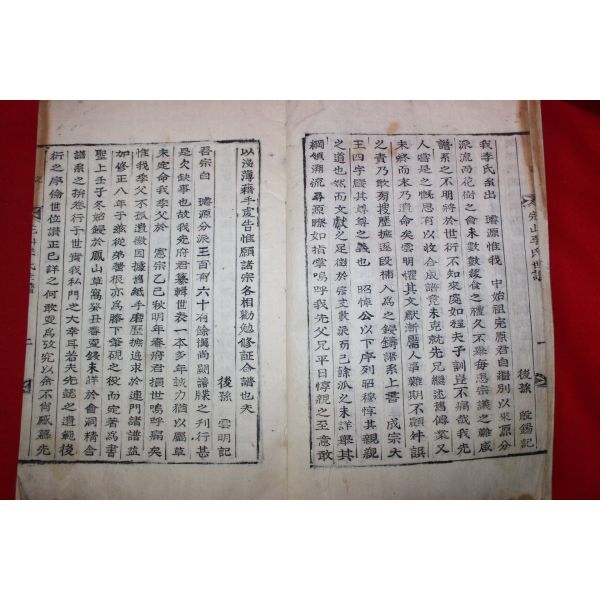 後孫 殷錫記
我李氏系出 璿源惟我 中始祖完原君自繼別以來原分
派流而花樹之會未數數餟食之禮久不舉每患宗議之難咸
譜系之不明將於世衍不知來處如程夫子訓豈不痛哉我先
人嘗是之慨思有以收合成譜竟未克就先兄繼述舊傳業又
未終而末乃遺命矣雲明懼其文獻 人事難期不顧舛誤
之責乃敢旁搜歷攄逐段補入爲之鋟鑄譜系上書 成宗大
王四字嚴其尊尊之義也 昭悼公以下序列昭穆惇其親親
之道也然而文獻之足徵於完文數派而已諸派之未詳舉其
綱領溯流尋源瞭如指掌嗚呼我先父兄平日惇親之至意敢
以淺薄藉手虔告惟願諸宗各相勸勉修証合譜也夫
後孫 雲明記
君宗曰 璿源分派王百有六十有餘 尚闕譜牒之刊行甚
是欠缺事也故我先府君纂輯世表一本多年誠力猶以屬草
未定命我季父於 憲宗己巳秋明年春府君損世嗚呼痛矣
惟我季父不孤遺 因據舊紙手磨歷攄追求於連門諸譜益
加修正八年于玆從弟著根亦爲膝下筆硯之役而定著爲書
聖上壬子冬始鋟於鳳山草窩癸丑春 末詳於會洞精舍
譜系之 卷行于世實我私門之大幸耳若夫先誌之遺範後
行之序倫世位讚正已詳之何敢更爲攷究以余不肖感 先